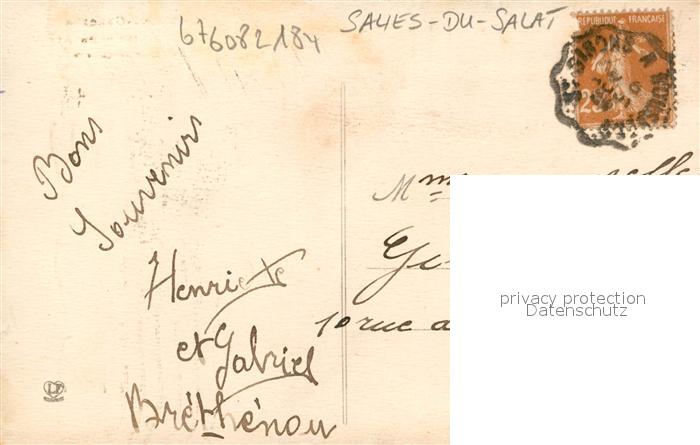 676082184
SALIES-DU-SALAT
REPUBLIQUE FRANÇAISE
25
Bons
Souvenirs
Henriette
et Gabriel
Bréthénou
Mme
10 rue
privacy protection
Datenschutz